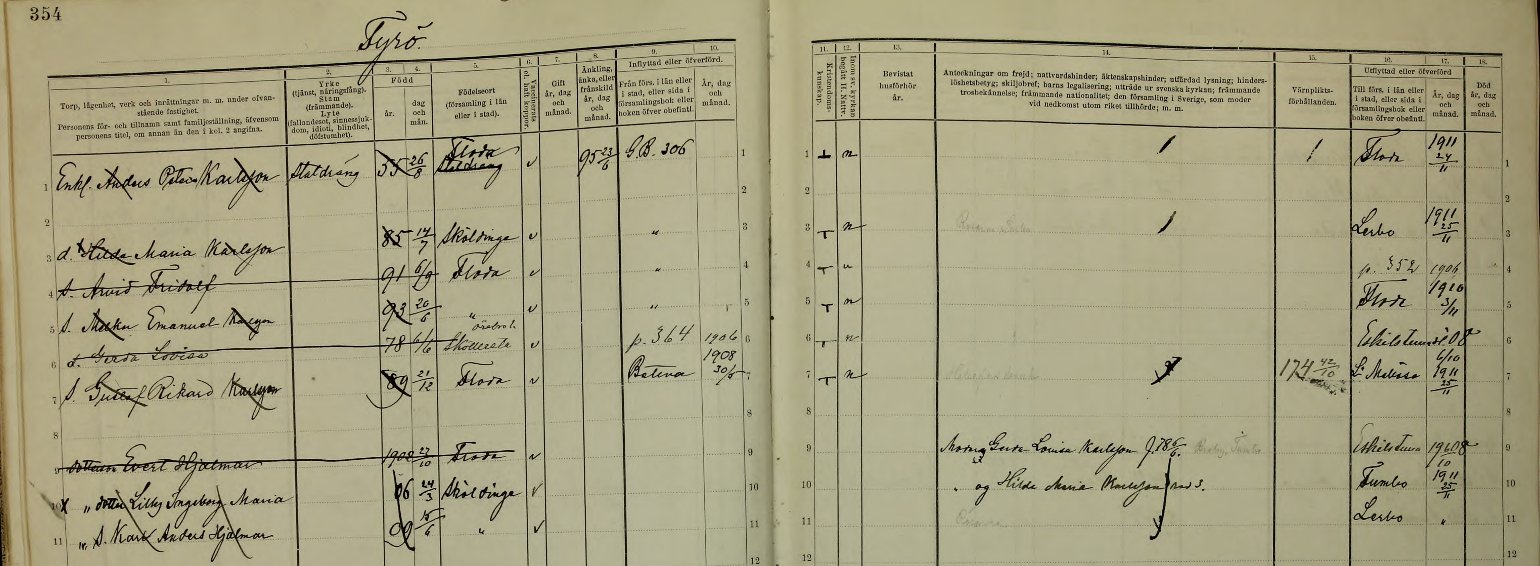 354
Fyrö.
1.
Torp, lägenhet, verk och inrättningar m. m. under ofvan-
stående fastighet.
Personens för- och tillnamn samt familjeställning, äfvensom
personens titel, om annan än den i kol. 2 angifna.
2.
Yrke
(tjänst, näringsfång).
Stam
(främmande).
Lyte
(fallandesot, sinnessjuk-
dom, idioti, blindhet,
döfstumhet).
3. 4.
Född
år.
dag
och
mån.
5.
Födelseort
(församling i län
eller i stad).
6.
Vaccinerats
el. haft koppor.
7.
Gift
år, dag
och
månad.
8.
Änkling,
änka, eller
frånskild
år, dag
och
månad.
9. 10.
Inflyttad eller öfverförd.
Från förs. i län eller
i stad, eller sida i
församlingsbok eller
boken öfver obefintl.
År, dag
och
månad.
11.
Kristendoms-
kunskap.
12.
Inom sv. kyrkan
begått H. Nattv.
13.
Bevistat
husförhör
år.
14.
Anteckningar om frejd; nattvardshinder; äktenskapshinder; utfärdad lysning; hinders-
löshetsbetyg; skiljobref; barns legalisering; utträde ur svenska kyrkan; främmande
trosbekännelse; främmande nationalitet; den församling i Sverige, som moder
vid nedkomst utom riket tillhörde; m. m.
15.
Värnplikts-
förhållanden.
16. 17.
Utflyttad eller öfverförd
Till förs. i län eller
i stad, eller sida i
församlingsbok eller
boken öfver obefintl.
År, dag
och
månad.
18.
Död
år, dag
och
månad.
1 Enkl. Anders Peter Karlsson Staldräng 55 26/8 Floda Staldräng v 95 23/6 G.B. 306 1
1 n Floda 1911 24/11 1
2 2
2 2
3 d. Hilda Maria Karlsson 85 14/7 Sköldinge v " 3
3 n Lerbo 1911 25/11 3
4 S. Arvid Fridolf 91 6/9 Floda v " 4
4 n p. 352 1906 4
5 S. Emanuel Karlsson 93 20/6 " v " 5
5 n Floda 1910 3/11 5
6 d. Gerda Lovisa 78 6/6 Örebro l. v p. 364 1906 6
6 n Eskilstuna 6
7 S. Gustaf Rikard Karlsson 89 21/12 Floda v 1908 30/5 7
7 n 174 42/10 1911 25/11 7
8 8
8 8
9 dotterson Evert Hjalmar 1902 27/10 Floda v 9
9 Moder Gerda Lovisa Karlsson f. 78 6/6. Eskilstuna 9
10 x " dotter Lilly Ingeborg Maria 06 24/3 Sköldinge v 10
10 " og Hilda Maria Karlsson rad 3. Tumbo 1911 25/11 10
11 " S. Karl Anders Hjalmar 09 15/6 " v 11
11 Lerbo " 11
12
12 12